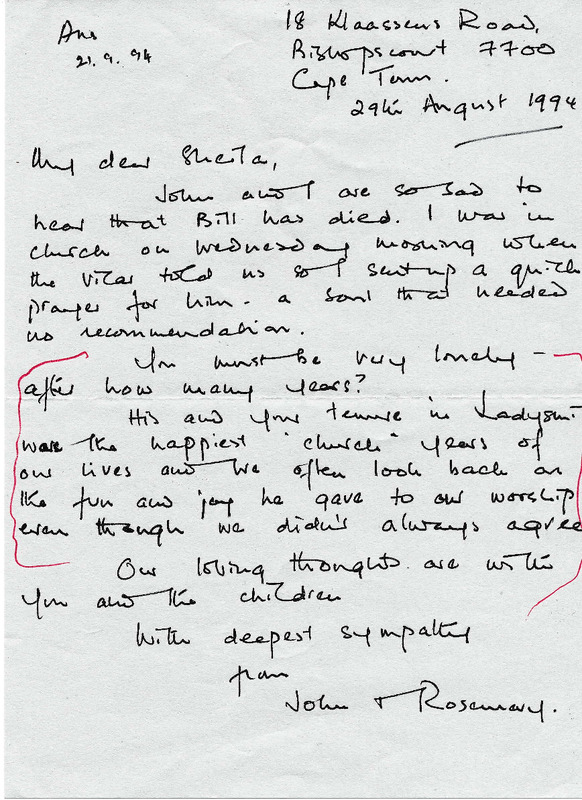 Ans
21.9.94
18 Klaassens Road,
Bishopscourt 7700
Cape Town.
29th August 1994
My dear Sheila,
John and I are so sad to
hear that Bill has died. I was in
church on Wednesday morning when
the Vicar told us so I sent up a quick
prayer for him - a soul that needed
no recommendation.
You must be very lonely -
after how many years?
His and your tenure in Ladysmi
was the happiest "church" years of
our lives and we often look back on
the fun and joy he gave to our worship
even though we didn't always agree
Our loving thoughts are with
you and the children
With deepest sympathy
from
John + Rosemary.